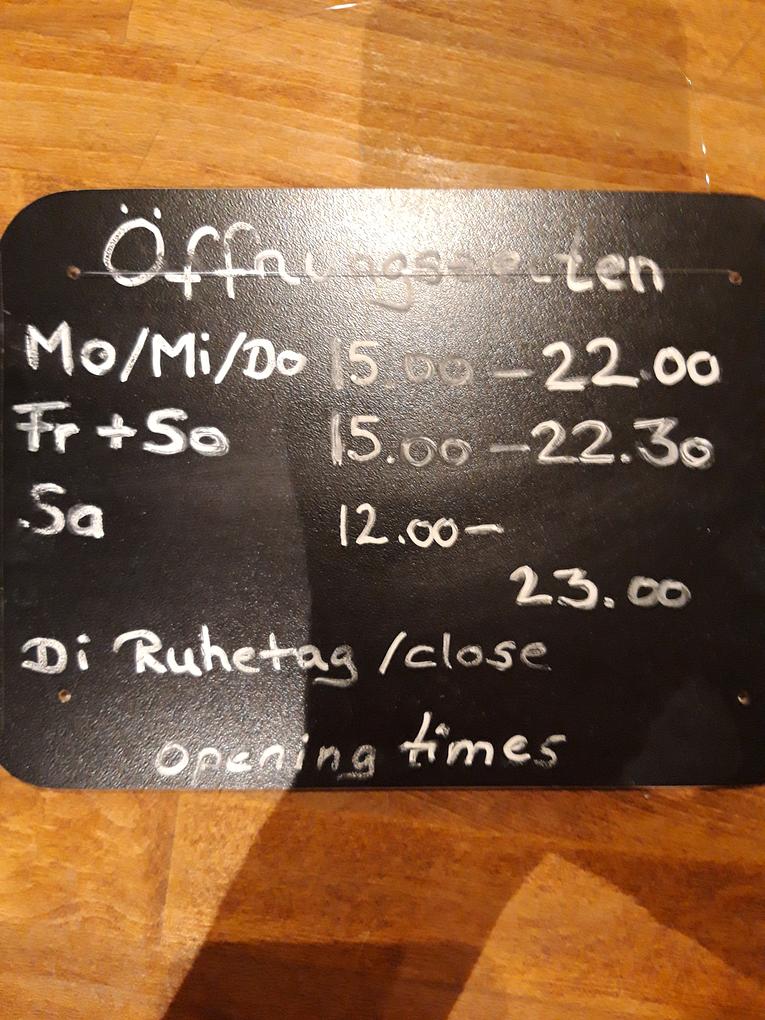 Öffnungszeiten
Mo/Mi/Do 15.00 – 22.00
Fr + So 15.00 – 22.30
Sa 12.00 –
23.00
Di Ruhetag / close
opening times